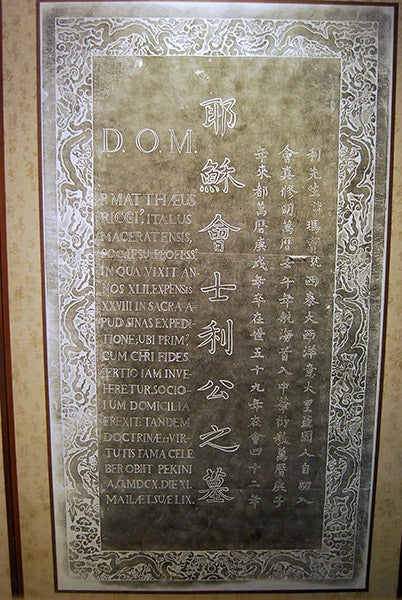 耶穌會士利公之墓
利先生諱瑪竇號西泰大西洋意大里亞國人自幼入
會真修明萬曆壬午年航海首入中華衍教萬曆庚子
年來都萬曆庚戌年卒在世五十九年在會四十二年
D. O. M.
P. MATTHÆUS
RICCI, ITALUS
MACERATENSIS,
SOC. IESU PROFESS,
IN QUA VIXIT AN-
NOS XLII. EXPENSIS
XXVIII IN SACRA A-
PUD SINAS EXPEDI-
TIONE; UBI PRIM,
CUM CHRI FIDES
TERTIO IAM INVE-
HERETUR, SOCIO-
RUM DOMICILIA
EREXIT. TANDEM
DOCTRINÆ ET VIR-
TUTIS FAMA CELE-
BER OBIIT PEKINI
A.C. MDCX. DIE XI.
MAII. ÆT. SUÆ LIX.